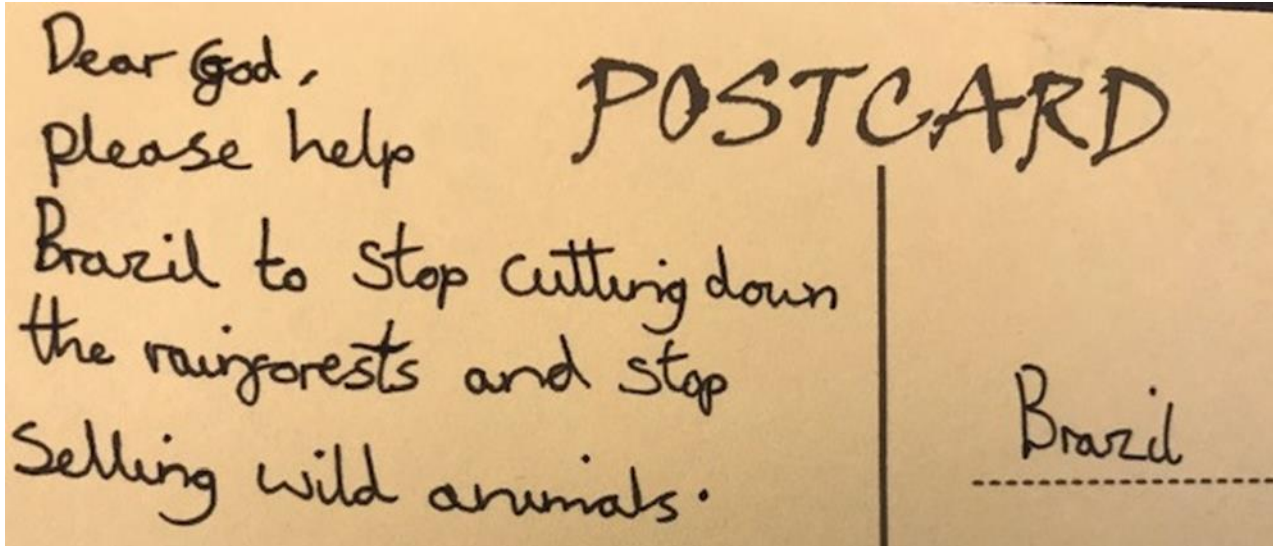 Dear God,
please help
Brazil to stop cutting down
the rainforests and stop
Selling wild animals.
POSTCARD
Brazil